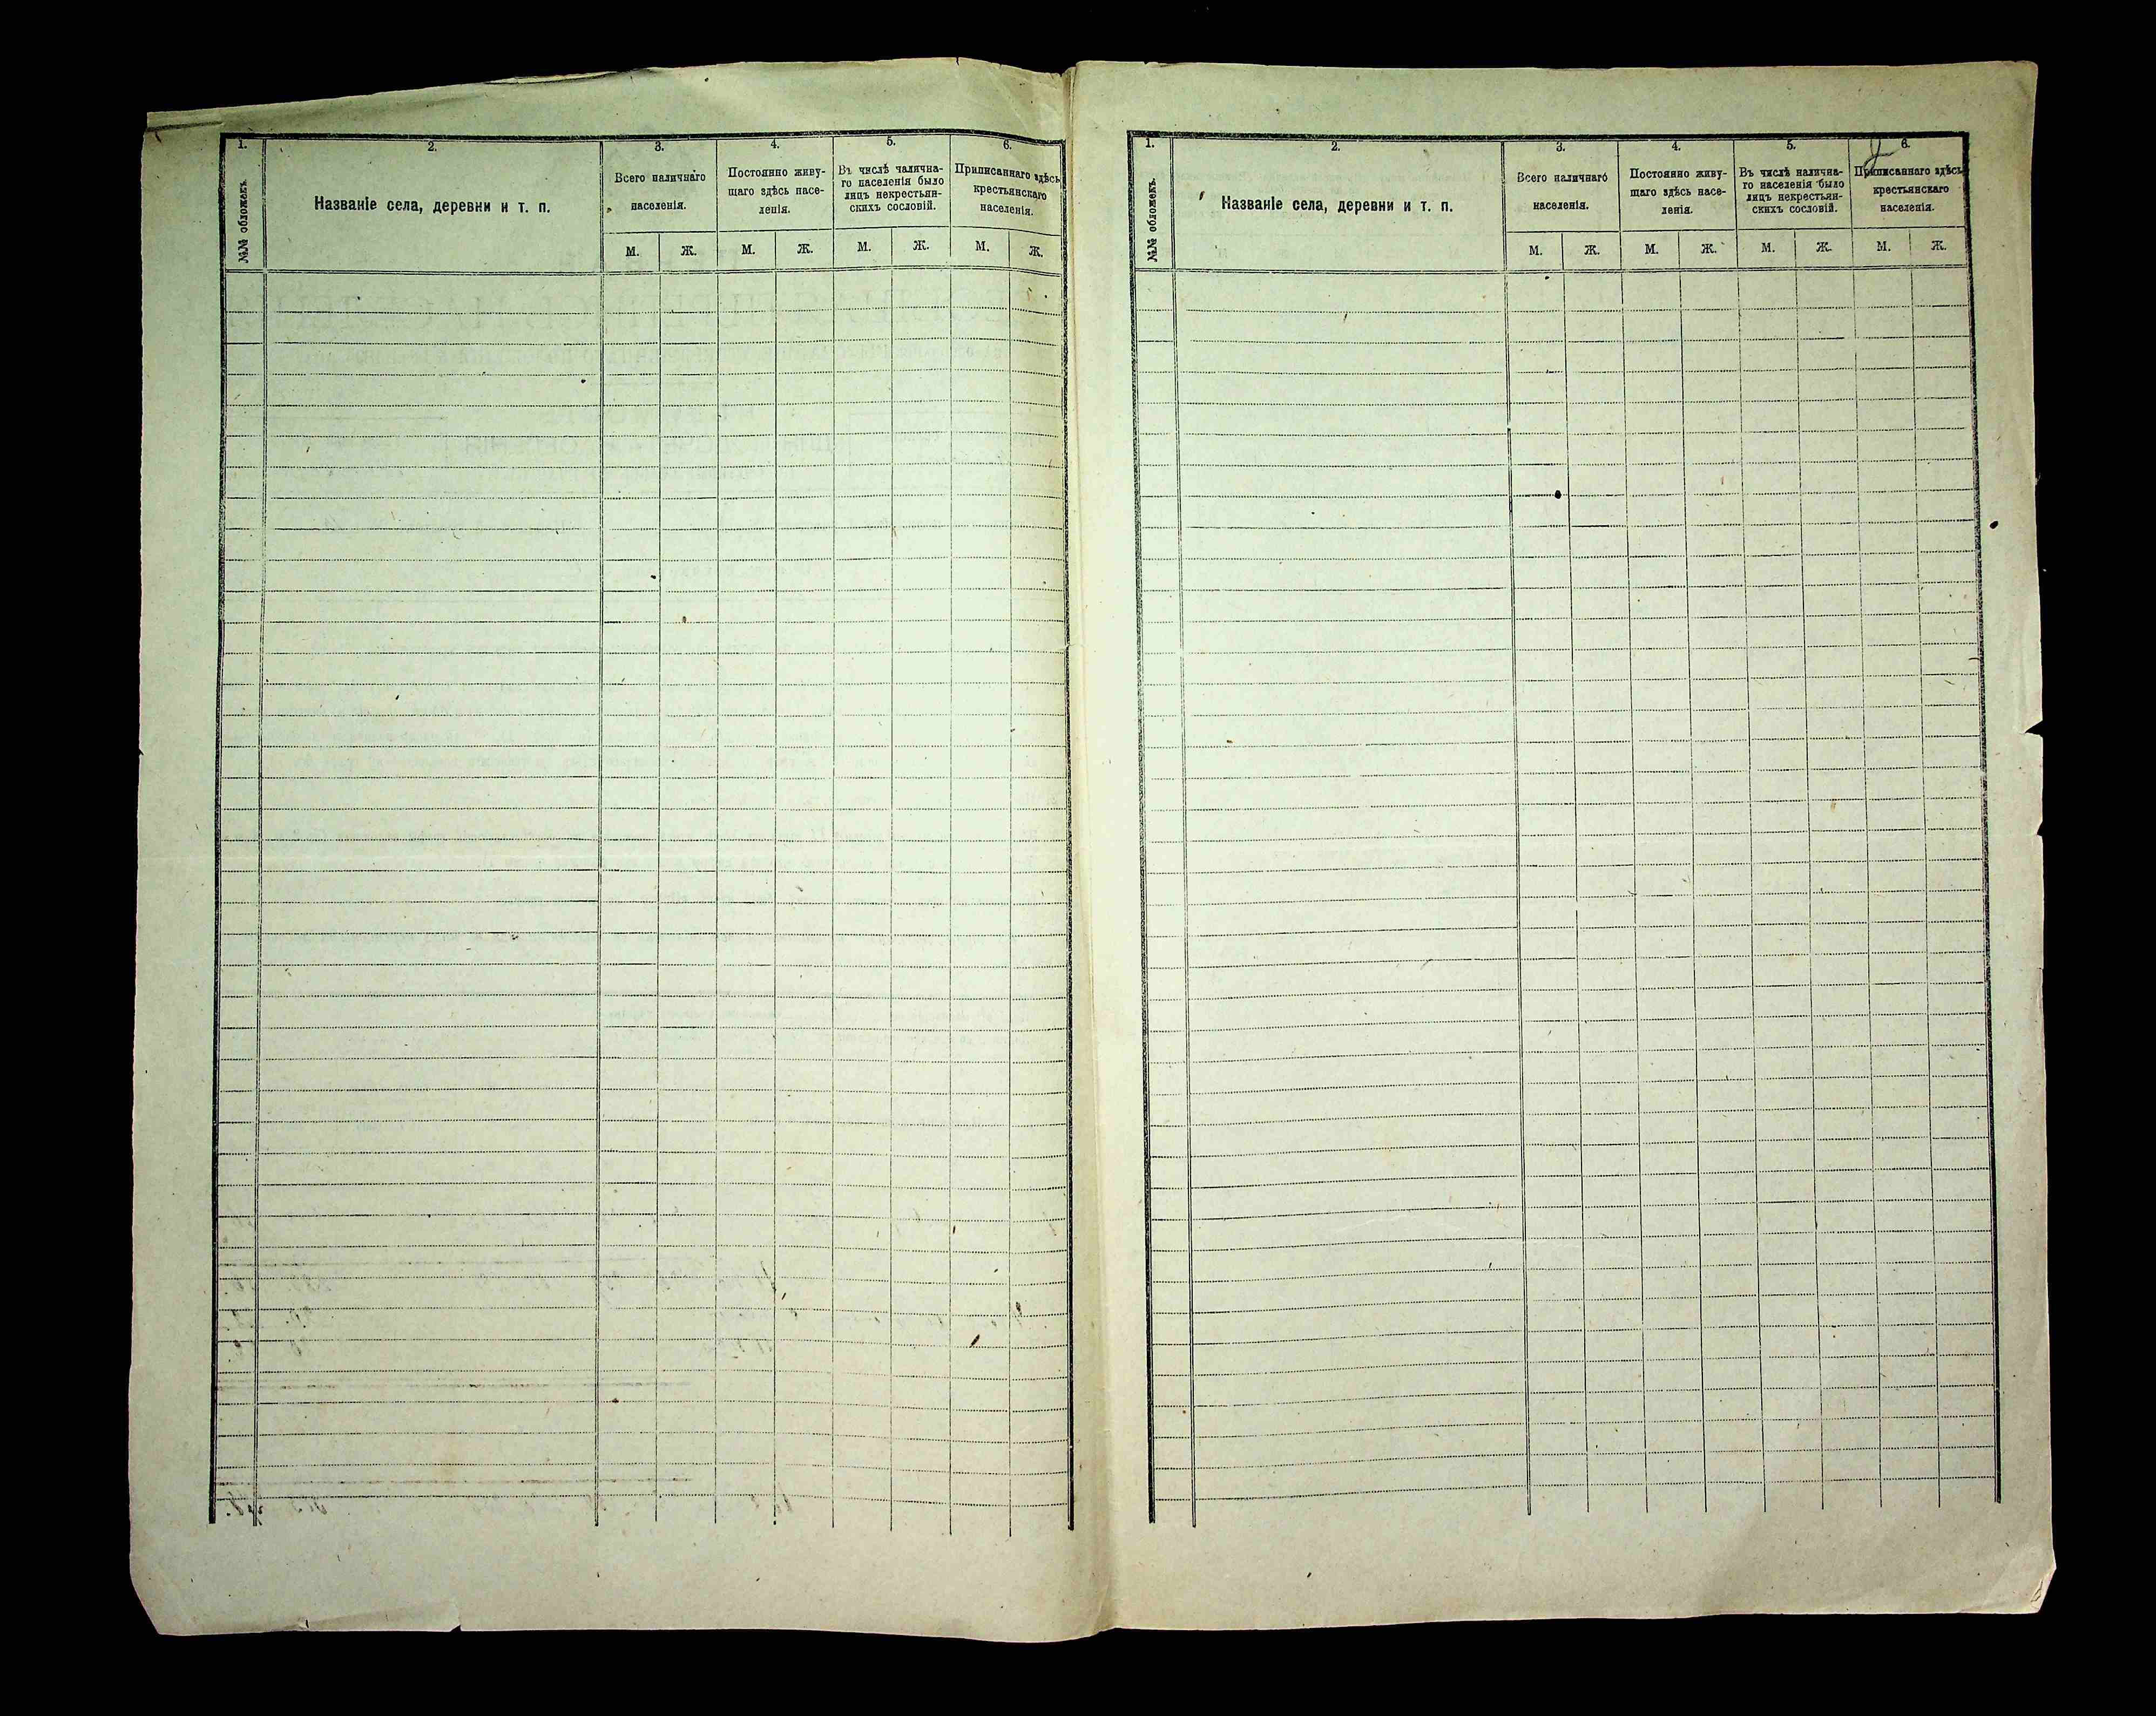 1. 2. 3. 4. 5. 6.
№№ обложекъ.
Названіе села, деревни и т. п.
Всего наличнаго
населенія.
Постоянно живу-
щаго здѣсь насе-
ленія.
Въ числѣ налична-
го населенія было
лицъ некрестьян-
скихъ сословій.
Приписаннаго здѣсь
крестьянскаго
населенія.
М. Ж. М. Ж. М. Ж. М. Ж.
1. 2. 3. 4. 5. 6.
№№ обложекъ.
Названіе села, деревни и т. п.
Всего наличнаго
населенія.
Постоянно живу-
щаго здѣсь насе-
ленія.
Въ числѣ налична-
го населенія было
лицъ некрестьян-
скихъ сословій.
Приписаннаго здѣсь
крестьянскаго
населенія.
М. Ж. М. Ж. М. Ж. М. Ж.